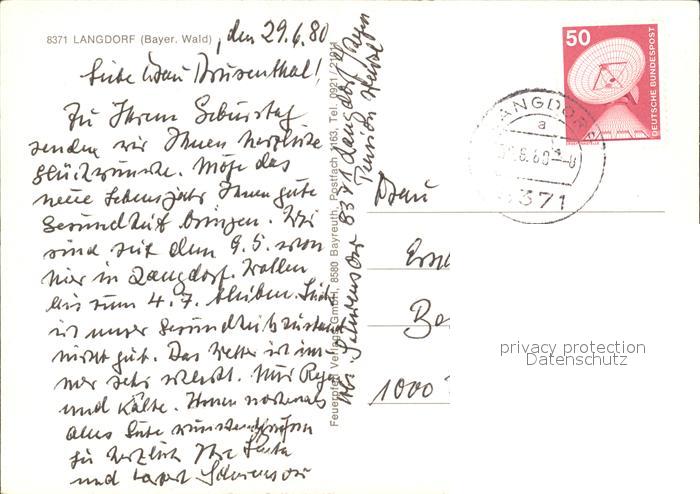 8371 LANGDORF (Bayer. Wald), den 29.6.80
Liebe Frau Brusenthal!
Zu Ihrem Geburtstag
senden wir Ihnen herzliche
Glückwünsche. Möge das
neue Lebensjahr Ihnen gute
Gesundheit bringen. Wir
sind seit dem 9.5. schon
hier in Langdorf. Wollen
bis zum 4.7. bleiben. Leider
ist unser Gesundheitszustand
nicht gut. Das Wetter ist im-
mer sehr schlecht. Nur Regen
und Kälte. Ihnen nochmals
alles Gute wünschend grüßen
Sie herzlich Ihre
und
Feuerpfeil Verlags GmbH, 8580 Bayreuth, Postfach 3163, Tel. 0921/21914
8371 Langdorf
Pension
50
DEUTSCHE BUNDESPOST
LANGDORF
a
.6.80-
8371
Frau
1000
privacy protection
Datenschutz